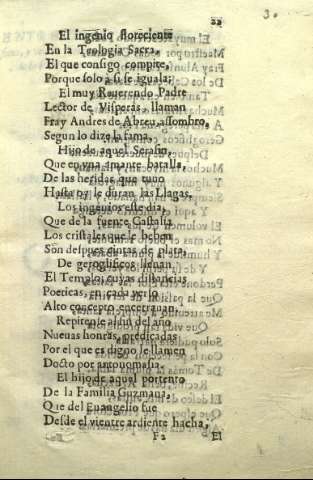 22
El ingenio floreciente
En la Teologia Sacra,
El que consigo compite,
Porque solo à si se iguala;
El muy Reuerendo Padre
Lector de Visperas, llaman
Fray Andres de Abreu, assombro,
Segun lo dize la fama,
Hijo de aquel Serafin,
Que en vna amante batalla,
De las heridas que tuuo
Hasta oy le duran las Llagas.
Los ingenios este dia,
Que de la fuente Castalia
Los cristales que le beben
Son despues cintas de plata,
De geroglificos llenan
El Templo; cuyas distancias
Poeticas, en cada verso
Alto concepto encerrauan.
Repitense al fin del año
Nueuas honras, predicadas
Por el que es digno le llamen
Docto por antonomasia.
El hijo de aquel portento
De la Familia Guzmana,
Que del Euangelio fue
Desde el vientre ardiente hacha,
F2 El